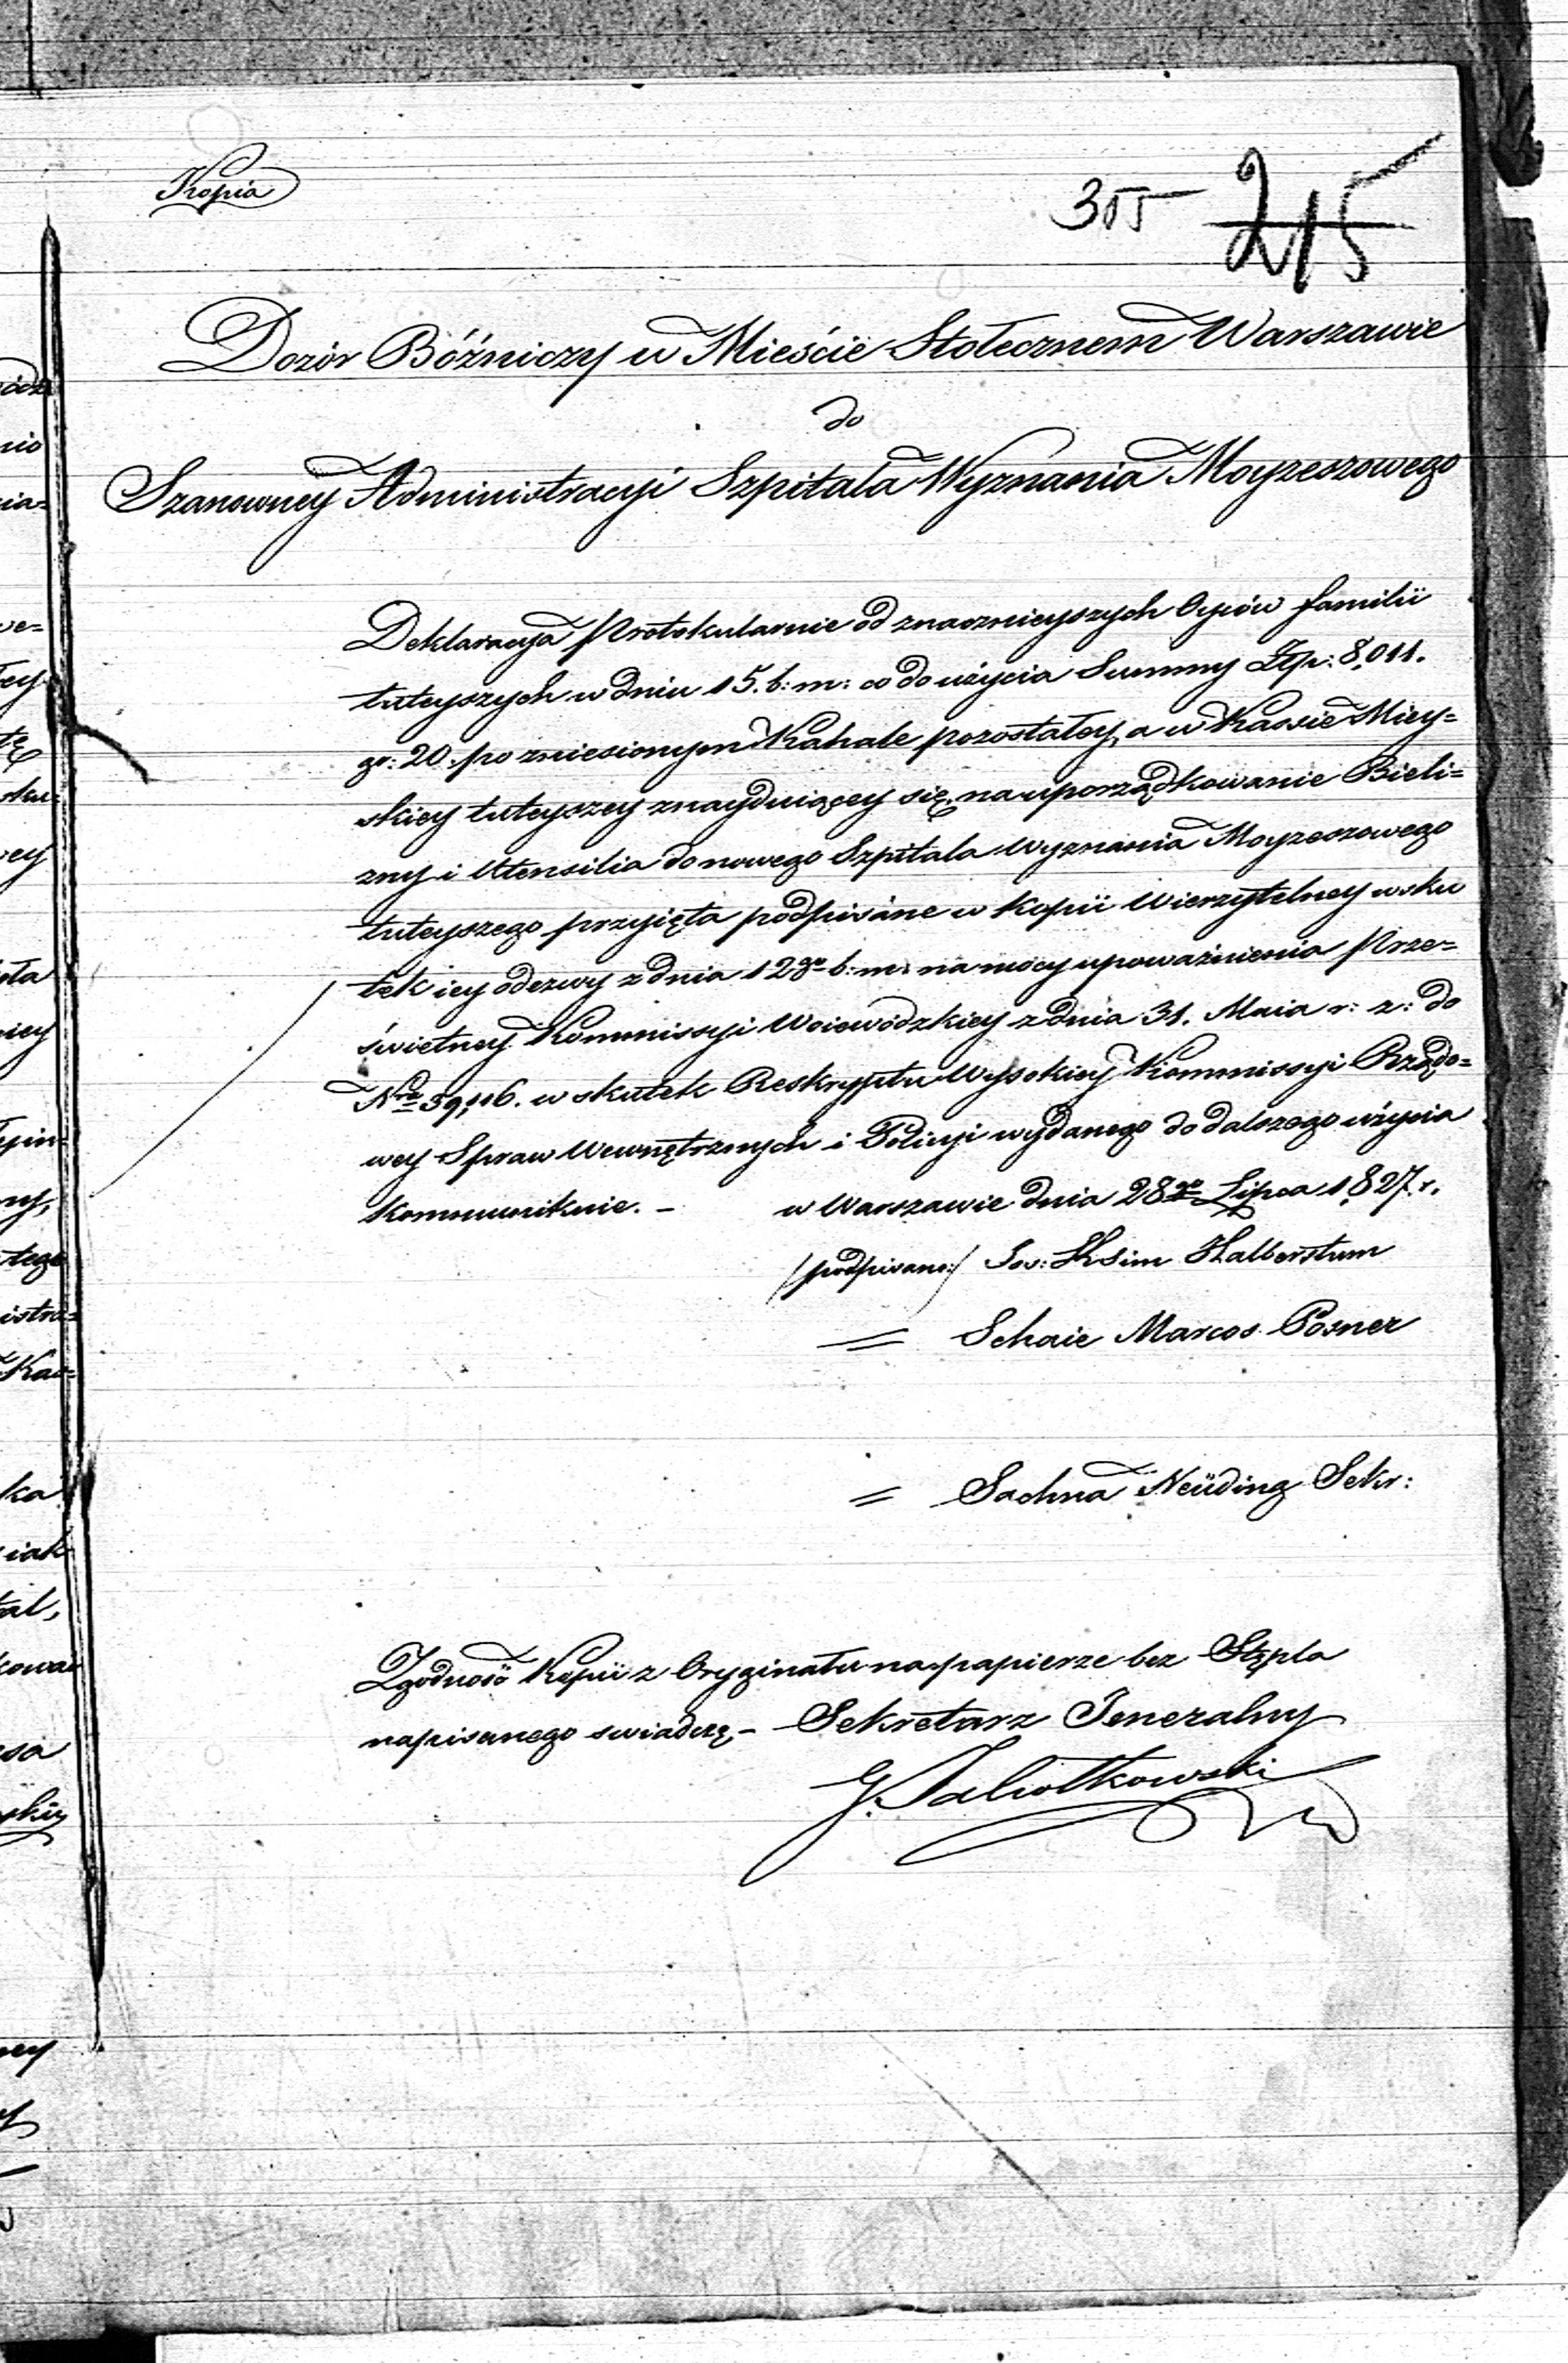 Kopia
355 215
Dozór Bóźniczy w Mieście Stołecznem Warszawie
do
Szanowney Administracyi Szpitala Wyznania Moyzeszowego
Deklaracya Protokularnie od znacznieyszych Oyców familii
tuteyszych w dniu 15. b: m: co do użycia Summy Złp: 8,011.
gr: 20. po zniesionym Kahale pozostałey, a w Kassie Miey=
skiey tuteyszey znayduiącey się, na uporządkowanie Bieli=
zny i Utensilia do nowego Szpitala Wyznania Moyzeszowego
tuteyszego przyięta podpisane w Kopii Wierzytelney wsku
tek iey odezwy z dnia 12go b: m: na mocy upoważnienia Prze=
świetney Kommissyi Woiewódzkiey z dnia 31. Maia r: z: do
Nro 39,116. w skutek Reskryptu Wysokiey Kommissyi Rządo=
wey Spraw Wewnętrznych i Policyi wydanego do dalszego użycia
kommunikuie. – w Warszawie dnia 28go Lipca 1,827. r.
/podpisano:/ Jos: Halberstam
= Schaie Marcos Posner
= Sachna Neüding Sekr:
Zgodność Kopii z Oryginału na papierze bez Stępla
napisanego swiadczę, – Sekretarz Jeneralny